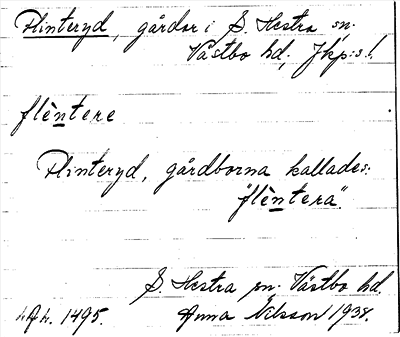 Flinteryd, gårdar i S. Hestra sn.
Västbo hd; Jkp:s l.
flèntere
Flinteryd, gårdborna kallades:
"flèntera".
S. Hestra sn. Västbo hd.
1495. Anna Nilsson 1938.